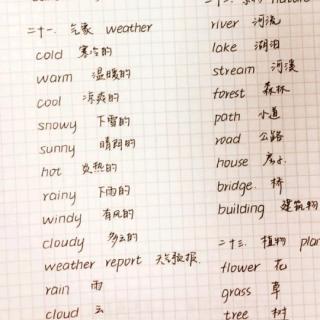 二十一、气象 weather
cold 寒冷的
warm 温暖的
cool 凉爽的
snowy 下雪的
sunny 晴朗的
hot 炎热的
rainy 下雨的
windy 有风的
cloudy 多云的
weather report 天气预报
rain 雨
cloud 云
river 河流
lake 湖泊
stream 河溪
forest 森林
path 小道
road 公路
house 房子
bridge 桥
building 建筑物
二十三、植物 plan
flower 花
grass 草
tree 树